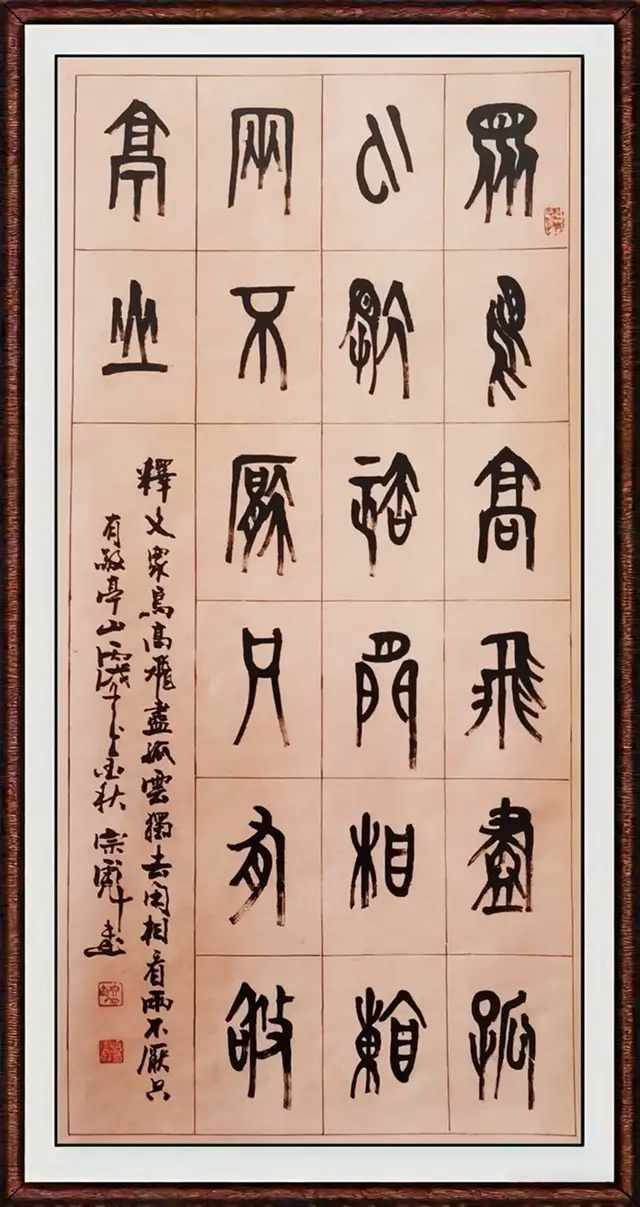 眾鳥高飛盡孤
云獨去閒相看
兩不厭只有敬
亭山
釋文衆鳥高飛盡孤雲獨去閑相看兩不厭只
有敬亭山 金秋 宗 書